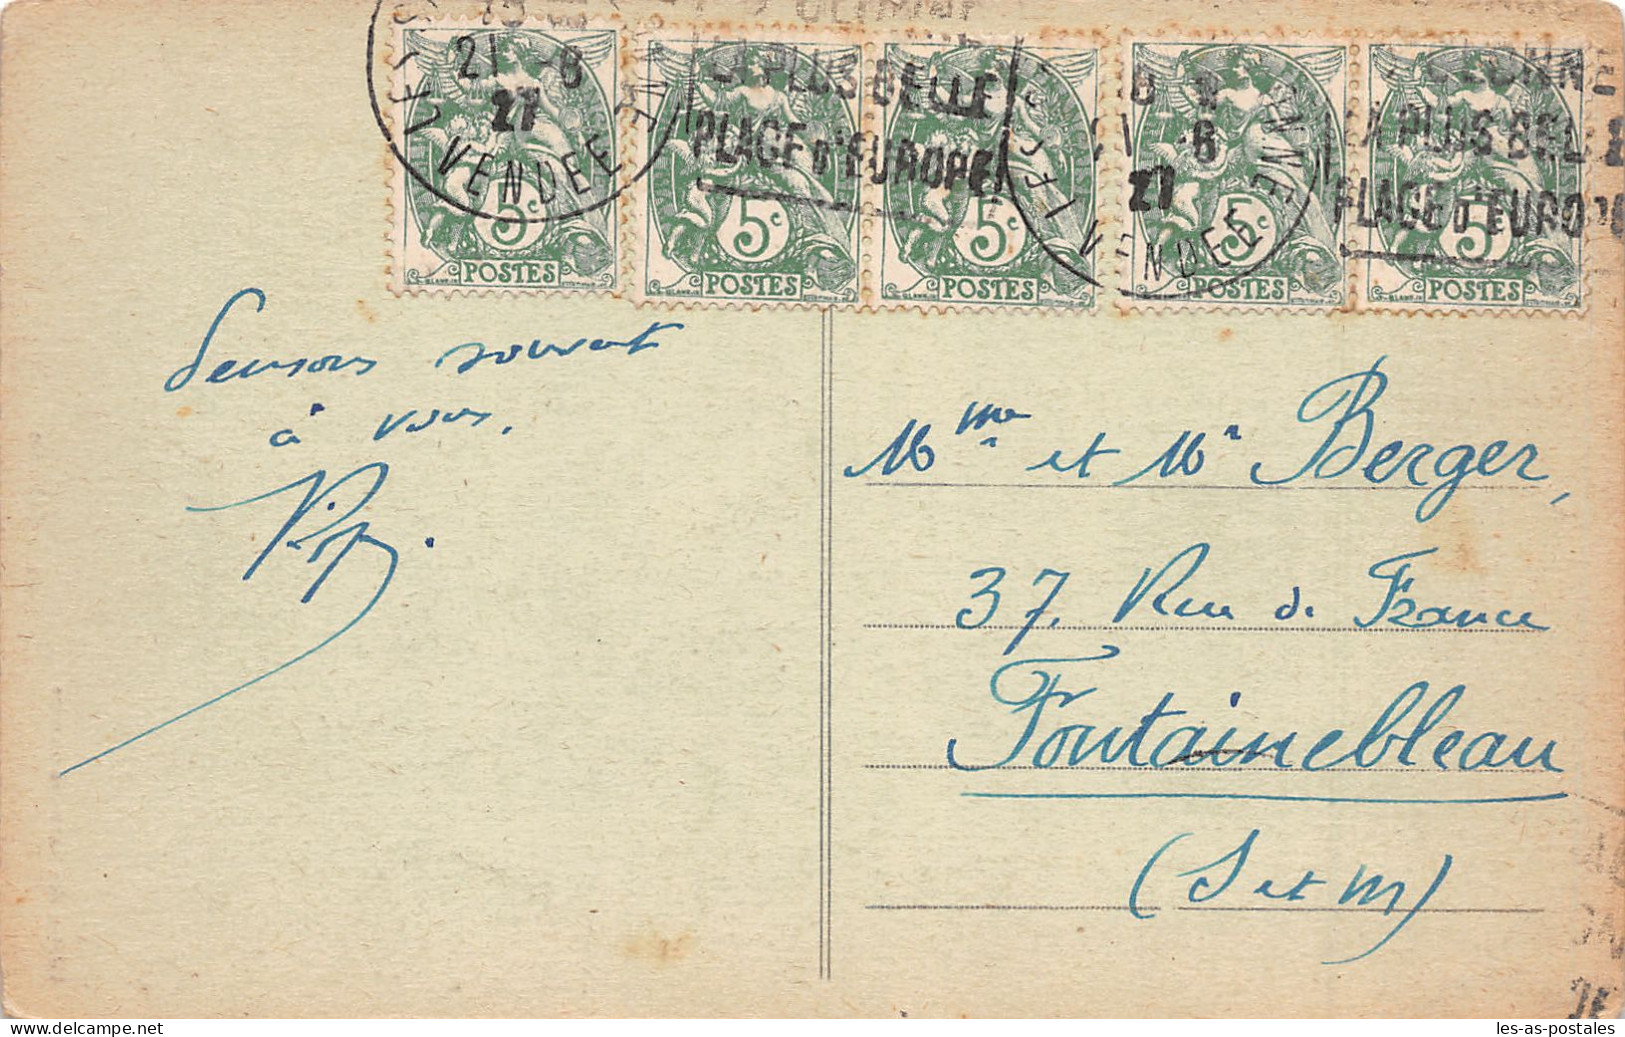 21 -8
27
VENDEE
LA PLUS BELLE
PLAGE D'EUROPE
-8
27
VENDEE
LA PLUS BELLE
PLAGE D'EUROPE
5c 5c 5c 5c 5c
POSTES POSTES POSTES POSTES POSTES
Pensons souvent
à vous.
Mme et Mr Berger,
37, Rue de France
Fontainebleau
(S et M)
les-as-postales